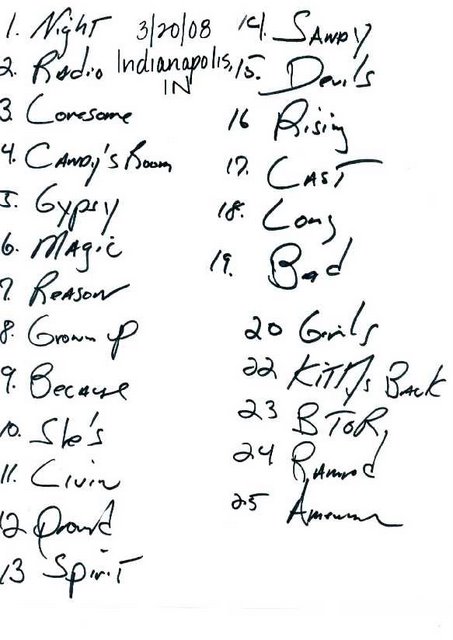 3/20/08
Indianapolis,
IN
1. Night
2. Radio
3. Lonesome
4. CANDY's Room
5. Gypsy
6. MAgic
7. REASON
8. Grown up
9. Because
10. She's
11. Livin
12
13 Spirit
14. SANDY
15. Devils
16 Rising
17. LAST
18. Long
19. Bad
20 Girls
22 KiTTy's BACK
23 BToR,
24 Ramrod
25 American